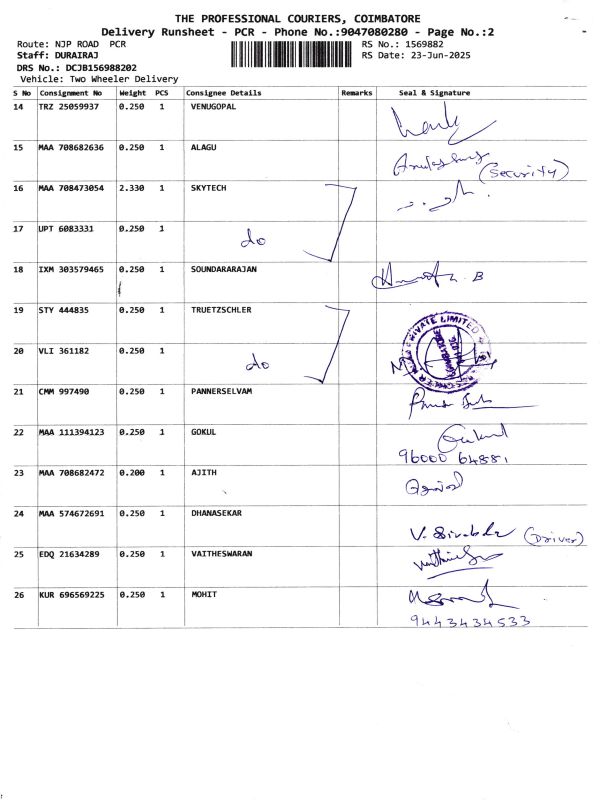 THE PROFESSIONAL COURIERS, COIMBATORE
Delivery Runsheet - PCR - Phone No.:9047080280 - Page No.:2
Route: NJP ROAD PCR RS No.: 1569882
Staff: DURAIRAJ RS Date: 23-Jun-2025
DRS No.: DCJB156988202
Vehicle: Two Wheeler Delivery
S No Consignment No Weight PCS Consignee Details Remarks Seal & Signature
14 TRZ 25059937 0.250 1 VENUGOPAL
15 MAA 708682636 0.250 1 ALAGU
(Security)
16 MAA 708473054 2.330 1 SKYTECH
17 UPT 6083331 0.250 1
do
18 IXM 303579465 0.250 1 SOUNDARARAJAN
19 STY 444835 0.250 1 TRUETZSCHLER
PRIVATE LIMITED
20 VLI 361182 0.250 1
do
21 CMM 997490 0.250 1 PANNERSELVAM
22 MAA 111394123 0.250 1 GOKUL
Gokul
96000 64881
23 MAA 708682472 0.200 1 AJITH
24 MAA 574672691 0.250 1 DHANASEKAR
(Driver)
25 EDQ 21634289 0.250 1 VAITHESWARAN
26 KUR 696569225 0.250 1 MOHIT
9443434533